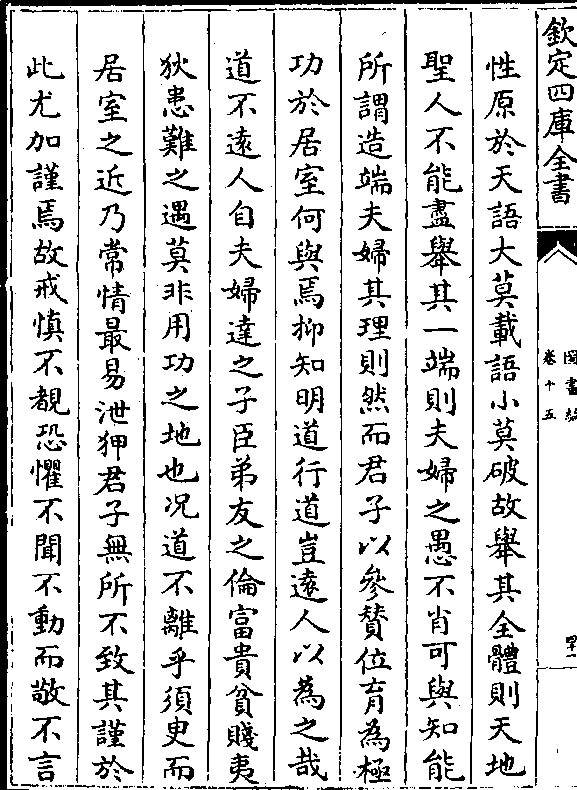 欽定四庫全書
圖書編
卷十五
性原於天語大莫載語小莫破故舉其全體則天地
聖人不能盡舉其一端則夫婦之愚不肖可與知能
所謂造端夫婦其理則然而君子以參賛位育為極
功於居室何與焉抑知明道行道豈遠人以為之哉
道不遠人自夫婦達之子臣弟友之倫富貴貧賤夷
狄患難之遇莫非用功之地也况道不離乎須臾而
居室之近乃常情最易泄狎君子無所不致其謹於
此尤加謹焉故戒慎不覩恐懼不聞不動而敬不言